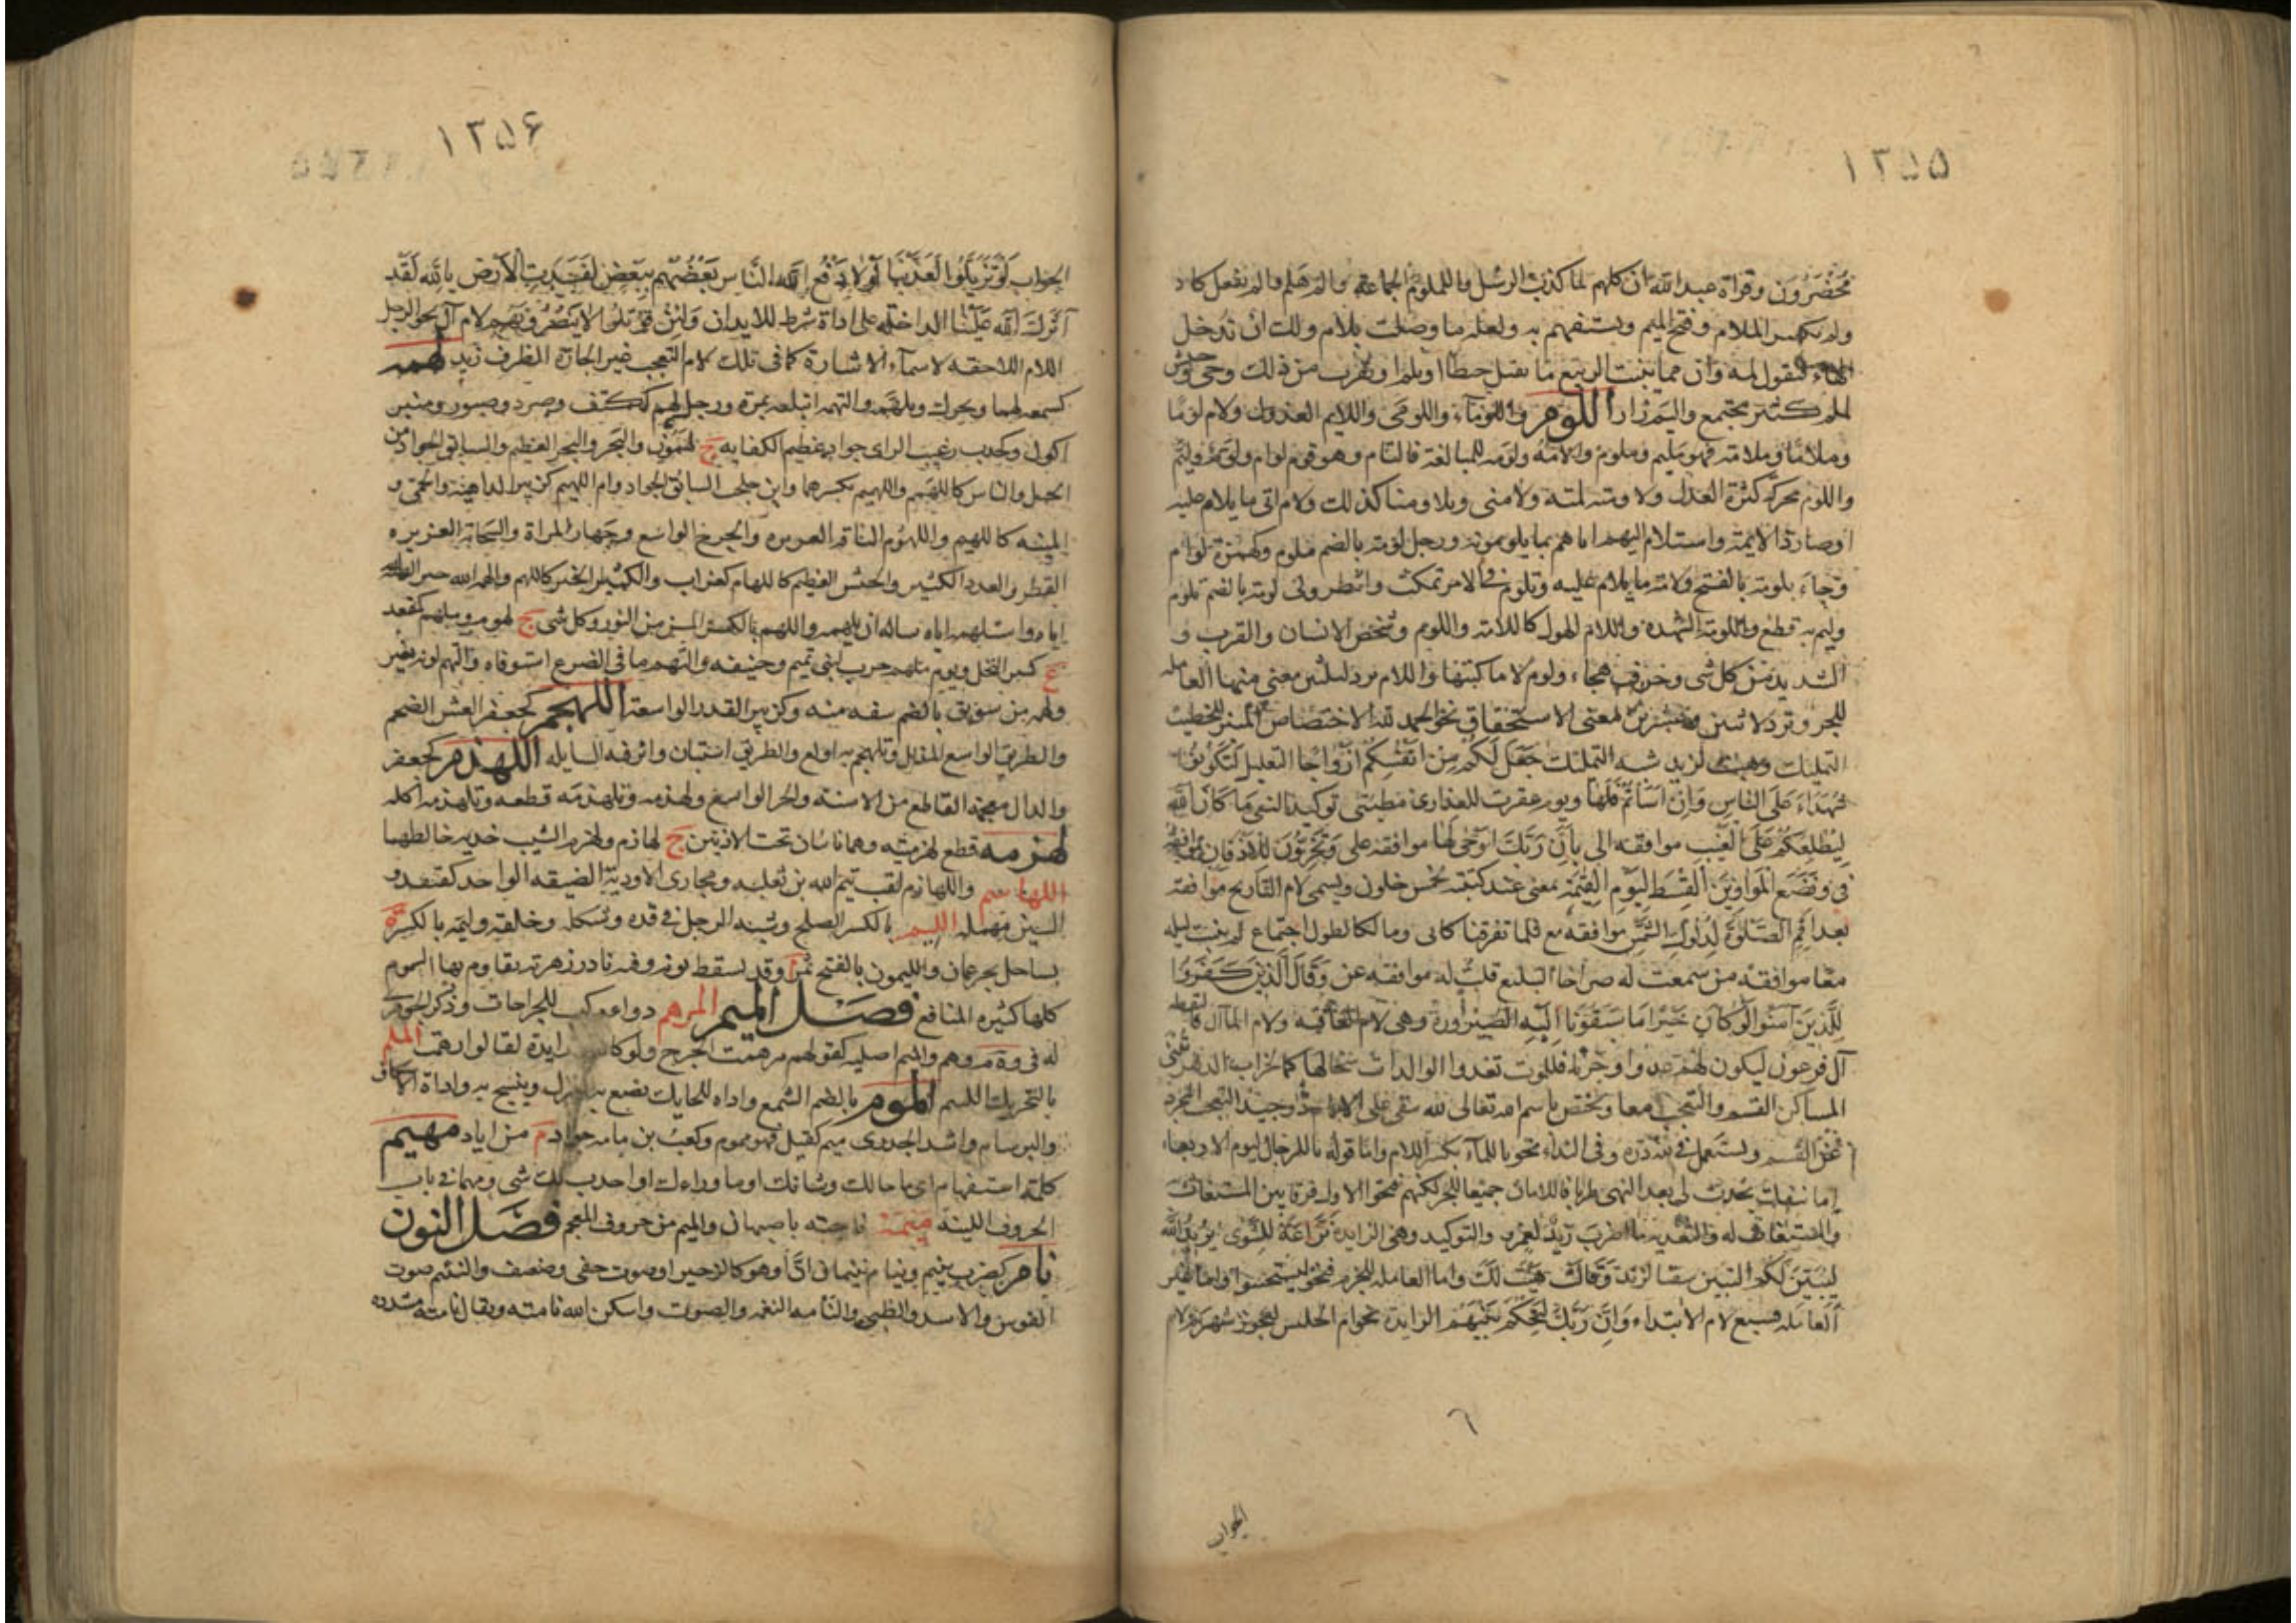 ١٢٥٥
محضرون وقراة عبد الله ان كلهم لما كذب الرسل والملموم الجماعة والم هلم فالم نفعل كاد
ولم بكسر اللام وفتح الميم ويستفهم به واصله ما وصلت بلام ولك ان تدخل
الهاء فتقول لمه وان مما ينبت الربيع ما يقتل حبطا او يلم او يقرب من ذلك وحي
لملم كثير مجتمع واليم زارا اللوم واللوماء واللومى واللايم العذول ولام لوما
وملاما وملامة فهو مليم وملوم والامه ولومه للمبالغة فالتام وهو قوم لوام ولوم وليم
واللوم محركة كثرة العذل ولاومته لمته ولامني وتلاومنا كذلك ولام اتى ما يلام عليه
او صار ذا لايمة واستلام اليهم اتاهم بما يلومونه ورجل لومة بالضم ملوم وكهمزة لوام
وجاء بلومة بالفتح ولامة ما يلام عليه وتلوم في الامر تمكث وانتظر ولى لومة بالضم تلوم
وليم به قطع واللومة الشهدة واللام الهول كاللامة واللوم وشخص الانسان والقرب و
الشديد من كل شى وحرف هجاء ولوم لاما كتبتها واللام ترد لثلثين معنى منها العاملة
للجر وترد لاثنين وعشرين لمعنى الاستحقاق نحو الحمد لله الاختصاص المنبر للخطيب
التمليك وهبت لزيد شبه التمليك جعل لكم من انفسكم ازواجا التعليل لتكونوا
شهداء على الناس وان اساتم فلها ويوم عقرت للعذارى مطيتي توكيد النفى ما كان الله
ليطلعكم على الغيب موافقة الى بان ربك اوحى لها موافقة على وتخرون للاذقان موافقة
في ونضع الموازين القسط ليوم القيمة بمعنى عند كتبته لخمس خلون ويسمى لام التاريخ موافقة
بعد اقم الصلوة لدلوك الشمس موافقة مع فلما تفرقنا كانى ومالكا لطول اجتماع لم نبت ليلة
معا موافقة من سمعت له صراخا التبليغ قلت له موافقة عن وقال الذين كفروا
للذين آمنوا لو كان خيرا ما سبقونا اليه الصيرورة وهي لام العاقبة ولام المآل فالتقطه
آل فرعون ليكون لهم عدوا وحزنا فللموت تغدوا الوالدات سخالها كما لخراب الدهر تبنى
المساكن القسم والتعجب معا ويختص باسم الله تعالى لله يبقى على الايام ذو حيد التعجب المجرد
عن القسم ويستعمل في لله دره وفي النداء نحو يا للماء بكسر اللام واما قوله يا للرجال ليوم الاربعاء
اما ينفك يحدث لى بعد النهى طربا فاللامان جميعا للجر لكنهم فتحوا الاول فرقا بين المستغاث
والمستغاث له والتعدية ما اضرب زيدا لعمرو والتوكيد وهي الزايدة نزاعة للشوى يريد الله
ليبين لكم التبيين سقيا لزيد وقالت هيت لك واما العاملة للجزم فنحو ليستجيبوا واما غير
العاملة فسبع لام الابتداء وان ربك ليحكم بينهم الزايدة نحو ام الحليس لعجوز شهربه لام
٦
الجواب
١٢٥۶
الجواب لو تزيلوا لعذبنا لولا دفع الله الناس بعضهم ببعض لفسدت الارض تالله لقد
آثرك الله علينا الداخلة على اداة شرط للايذان ولئن قوتلوا لا ينصرونهم لام آل نحو الرجل
اللام اللاحقة لاسماء الاشارة كما في تلك لام التعجب غير الجارة لظرف زيد لهمه
كسمعه لهما ويحرك وتلهمه والتهمه ابتلعه بمرة ورجل لهم ككتف وصرد وصبور ومنبر
اكول وكخدب رغيب الراى جواد عظيم الكفاية ج لهمون والبحر والبحر العظيم والسابق الجواد من
الخيل والناس كاللهيم واللهميم بكسرهما وابن جلجب السابق الجواد وام اللهيم كزبير الداهية والحمى و
المنيه كاللهيم واللهموم الناقة الغزيرة والجرح الواسع وجهاز المراة والسحابة الغزيرة
القطر والعدد الكثير والجيش العظيم كاللهام كغراب والكثير الخير كاللهم والهمه الله خيرا لقنه
اياه واستلهمه اياه ساله ان يلهمه واللهم بالكسر المسن من الثور وكل شى ج لهوم وملهم كمقعد
ع كثير النخل ويوم ملهم حرب لبنى تميم وحنيفة والتهم ما في الضرع استوفاه والتهم لونه تغير
ولهمه من سويق بالضم سفه منه وكزبير القدر الواسعة اللهجم كجعفر العس الضخم
والطريق الواسع المذلل وتلهجم به اولع والطريق استبان واثر فيه السابلة اللهذم كجعفر
والدال معجمة القاطع من الاسنة والحر الواسع ولهذمه وتلهذمه قطعه وتلهذمه اكله
لهزمه قطع لهزمته وهما ناتئان تحت الاذنين ج لهازم ولهزم الشيب خديه خالطهما
واللهازم لقب تيم الله بن ثعلبه اللهاسم ومجارى الاودية الضيقة الواحد كقنفذ و
السين مهملة الليم بالكسر الصلح وشبه الرجل في قده وشكله وخلقته وليمة بالكسر ة
بساحل بحر عمان والليمون بالفتح ثمر وقد يسقط نونه وفيه نادر زهرته يقاوم بها السموم
كلها كثيرة المنافع فصل الميم المرهم دواء مركب للجراحات وذكر الجوهرى
له في وة م رهم والميم اصلية لقولهم مرهمت الجرح ولو كانت زايدة لقالوا رهمت الملم
بالتحريك اللمم الموم بالضم الشمع واداة للحايك يضع بها الغزل وينسج به واداة الاسكاف
والبرسام واشد الجدرى ميم كقيل فهو موم وكعب بن مامه جواد م من اياد مهيم
كلمة استفهام اى ما حالك وشانك او ما وراءك او احدث لك شى ومهما في باب
الحروف اللينة ميمة ناحية باصبهان والميم من حروف المعجم فصل النون
نام كضرب ينيم وينام نئيما ان او هو كالزحير او صوت خفى وضعف والنئيم صوت
القوس والاسد والظبى والنامة النغمة والصوت واسكن الله نامته ويقال نامته مشددة